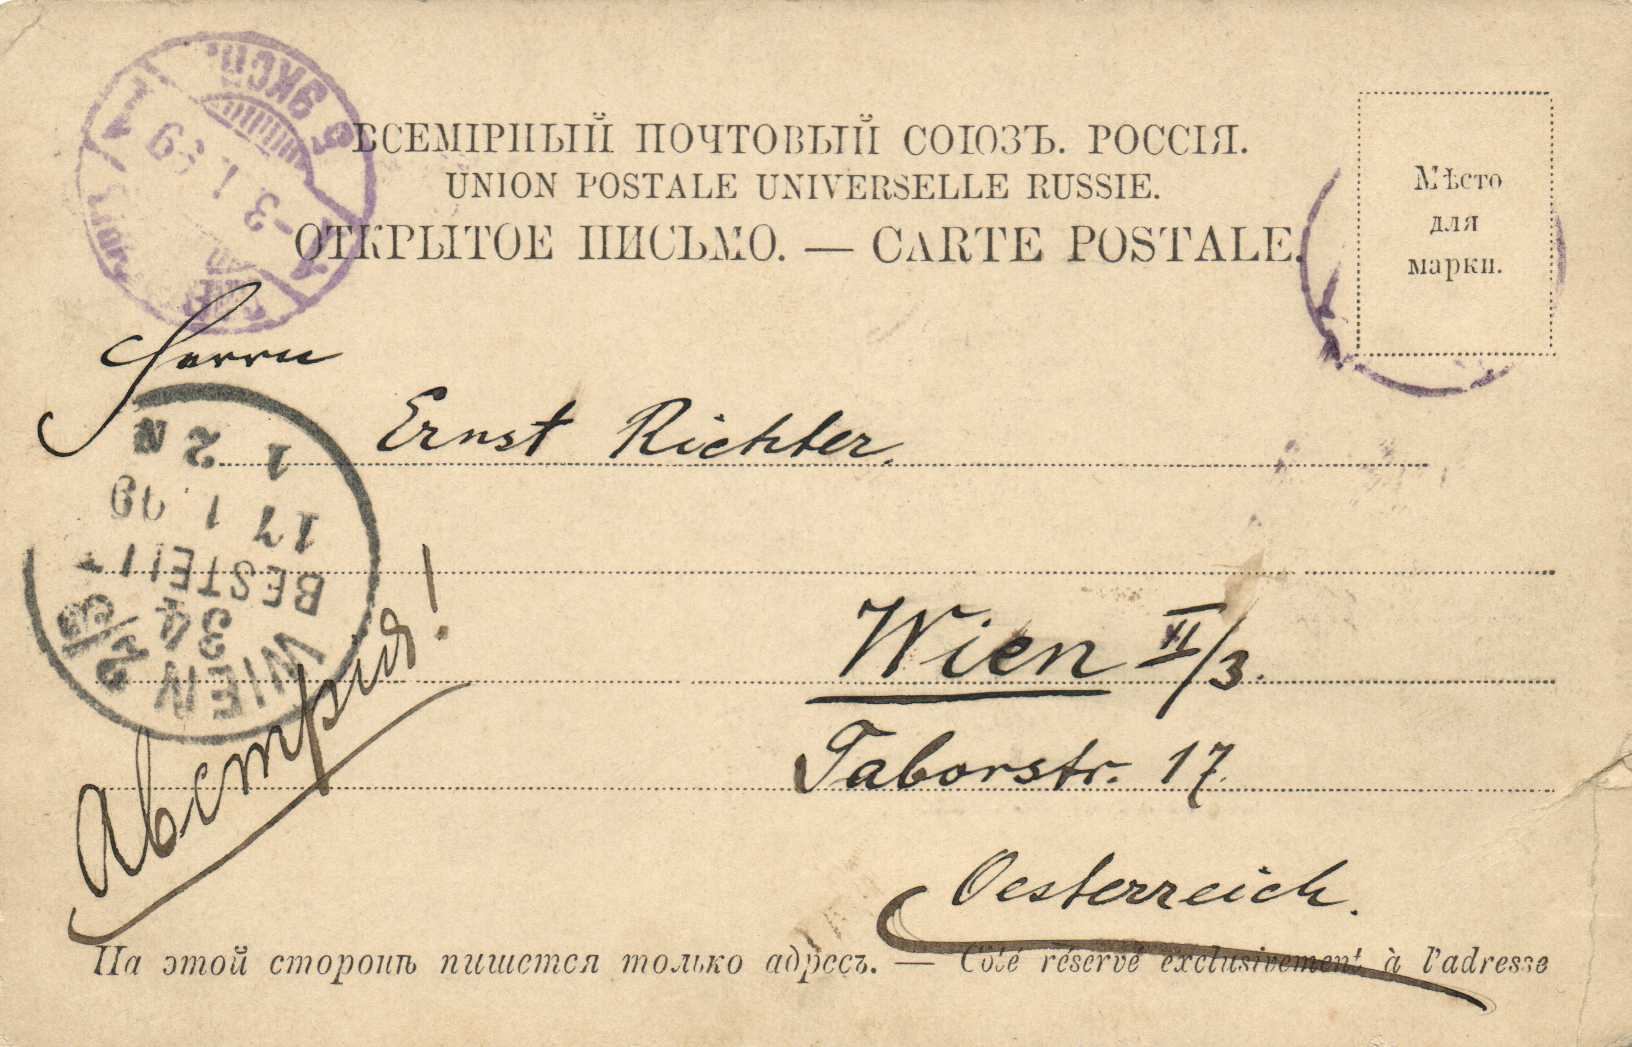 ВСЕМІРНЫЙ ПОЧТОВЫЙ СОЮЗЪ. РОССІЯ.
UNION POSTALE UNIVERSELLE RUSSIE.
ОТКРЫТОЕ ПИСЬМО. — CARTE POSTALE.
Мѣсто
для
марки.
6 ЭКСП.
1
-3. 1. 99
Herrn
Ernst Richter.
Wien II/3.
Taborstr. 17.
Oesterreich.
Австрия!
WIEN 2/3
34
BESTELLT
17 1. 99
1 2 N
На этой сторонѣ пишется только адресъ. — Côté réservé exclusivement à l'adresse